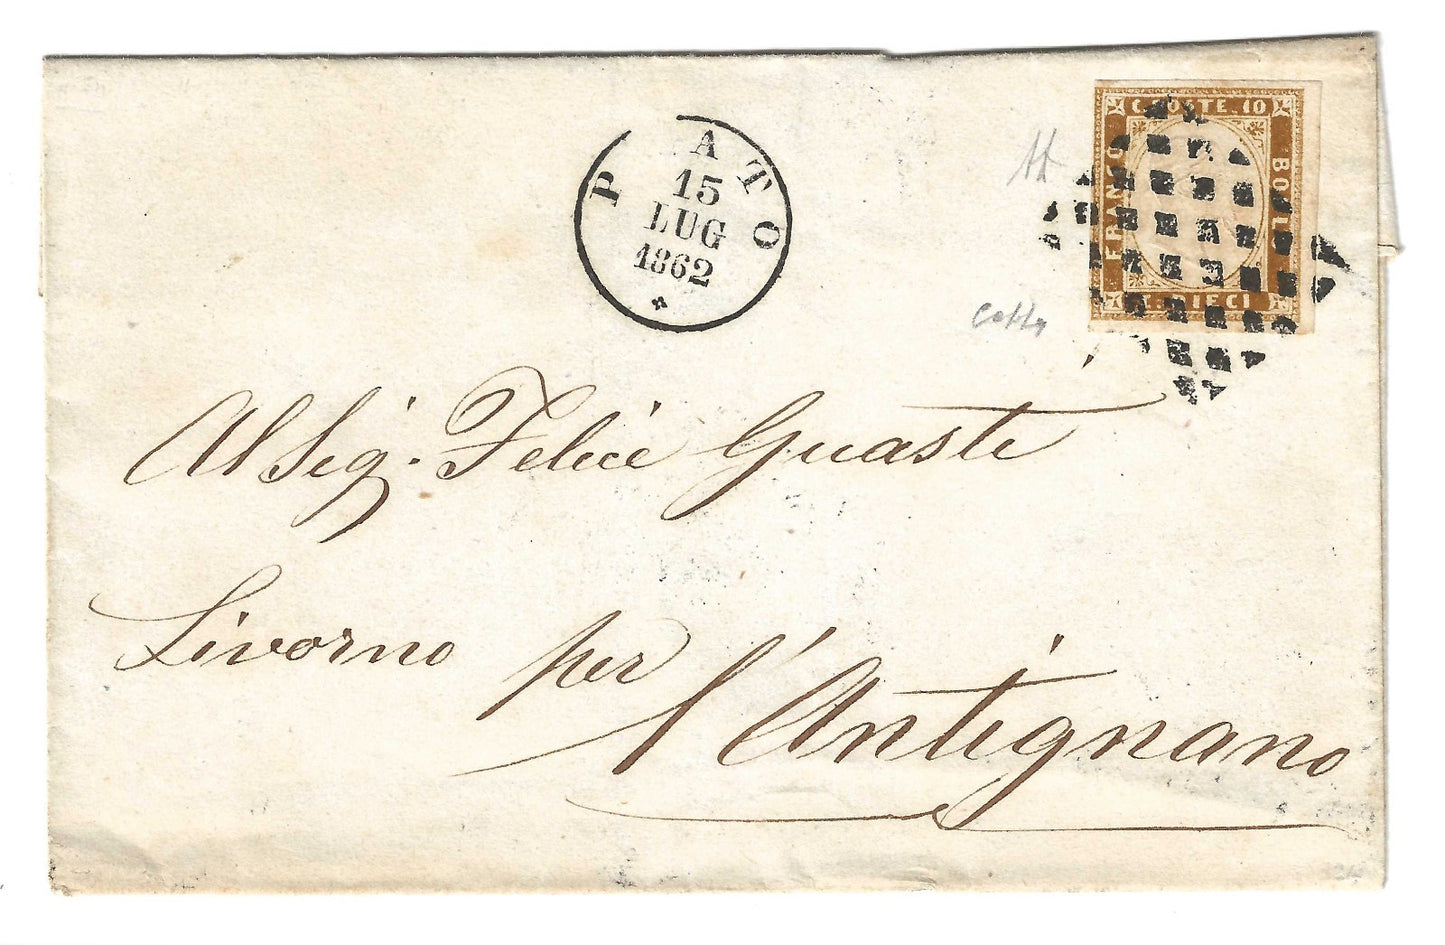 P ATO
15
LUG
1862
C. POSTE. 10
FRANCO
BOLLO
C: DIECI
Al Sig. Felice Guasti
Livorno per
l'Antignano